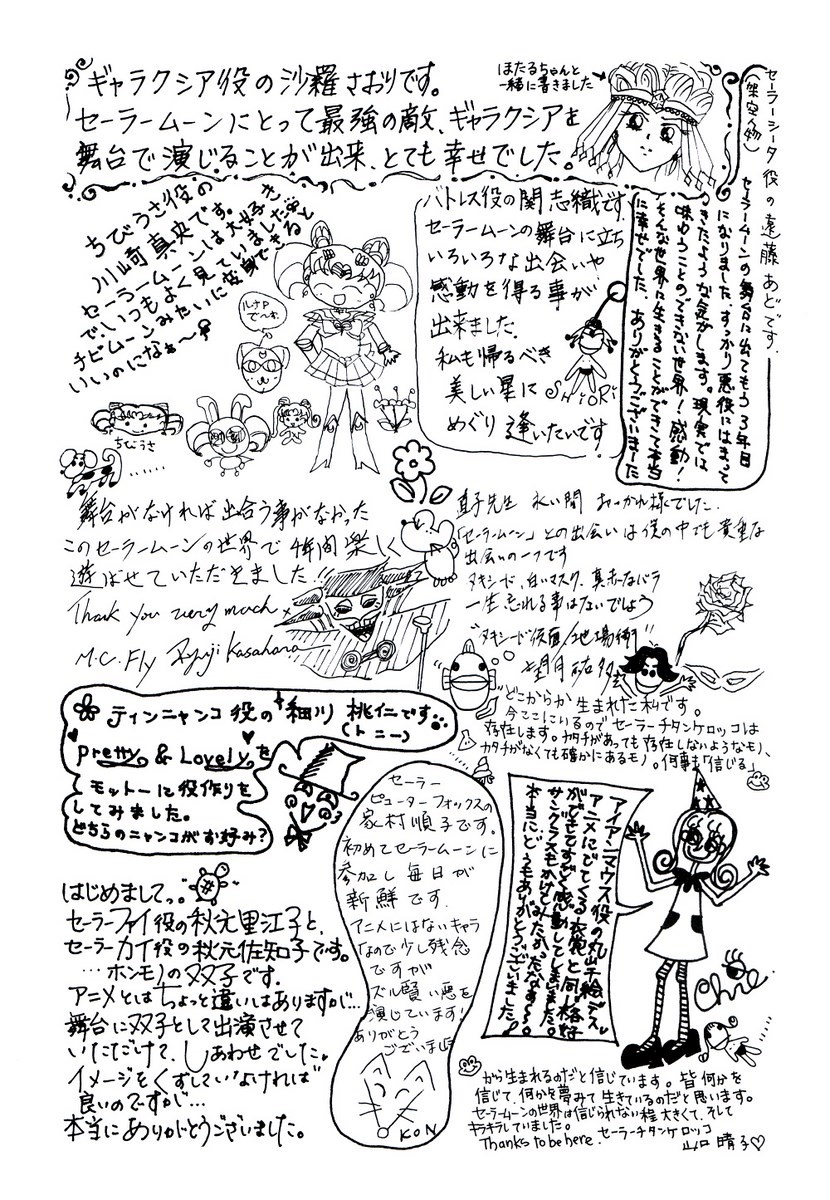 ギャラクシア役の沙羅さおりです。
セーラームーンにとって最強の敵、ギャラクシアを
舞台で演じることが出来、とても幸せでした。
ほたるちゃんと
一緒に書きました
セーラーシータ役の遠藤あどです。
(架空人物)
セーラームーンの舞台に出てもう3年目
になりました。すっかり悪役にはまって
きたような気がします。現実では
味わうことのできない世界!感動!
そんな世界に生きることができて本当
に幸せでした。ありがとうございました
ちびうさ役の
川崎真央です。
セーラームーンは大好き
でいつもよく見ていました
チビムーンみたいに変身できると
いいのになぁ〜
ルナP
で〜す
ちびうさ
バトレス役の関志織です。
セーラームーンの舞台に立ち
いろいろな出会いや
感動を得る事が
出来ました。
私も帰るべき
美しい星に
めぐり逢いたいです
SHIORI
舞台がなければ出合う事がなかった
このセーラームーンの世界で4年間楽しく
遊ばせていただきました!!
Thank you very much
M.C. Fly Ryuji Kasahara
直子先生 永い間 おつかれ様でした。
「セーラームーン」との出会いは僕の中でも貴重な
出会いの一つです
タキシード、白いマスク、真赤なバラ
一生忘れる事はないでしょう
"タキシード仮面/地場衛"
望月祐多
どこからか生まれた私です。
今ここにいるのでセーラーチタンケロッコは
存在します。カタチがあっても存在しないようなモノ、
カタチがなくても確かにあるモノ。何事も「信じる」
ティンニャンコ役の細川 桃仁です
(トニー)
Pretty & Lovelyを
モットーに役作りを
してみました。
どちらのニャンコがお好み?
セーラー
ピューターフォックスの
家村順子です。
初めてセーラームーンに
参加し毎日が
新鮮です。
アニメにはないキャラ
なので少し残念
ですが
ズル賢い悪を
演じています!
ありがとう
ございます
KON
アイアンマウス役の丸山千絵デス。
アニメにでてくる衣裳と同じ格好
ができてすごく感動してしまいました。
サングラスもかけてみたかったなぁ〜。
本当にどうもありがとうございました。
Chie
はじめまして。。
セーラーファイ役の秋元里江子と、
セーラーカイ役の秋元佐知子です。
…ホンモノの双子です。
アニメとはちょっと違いはありますが…
舞台に双子として出演させて
いただけて、しあわせでした。
イメージをくずしていなければ
良いのですが…
本当にありがとうございました。
から生まれるのだと信じています。皆何かを
信じて、何かを夢みて生きているのだと思います。
セーラームーンの世界は信じられない程大きくて、そして
キラキラしていました。
Thanks to be here. セーラーチタンケロッコ
山口 晴子♡